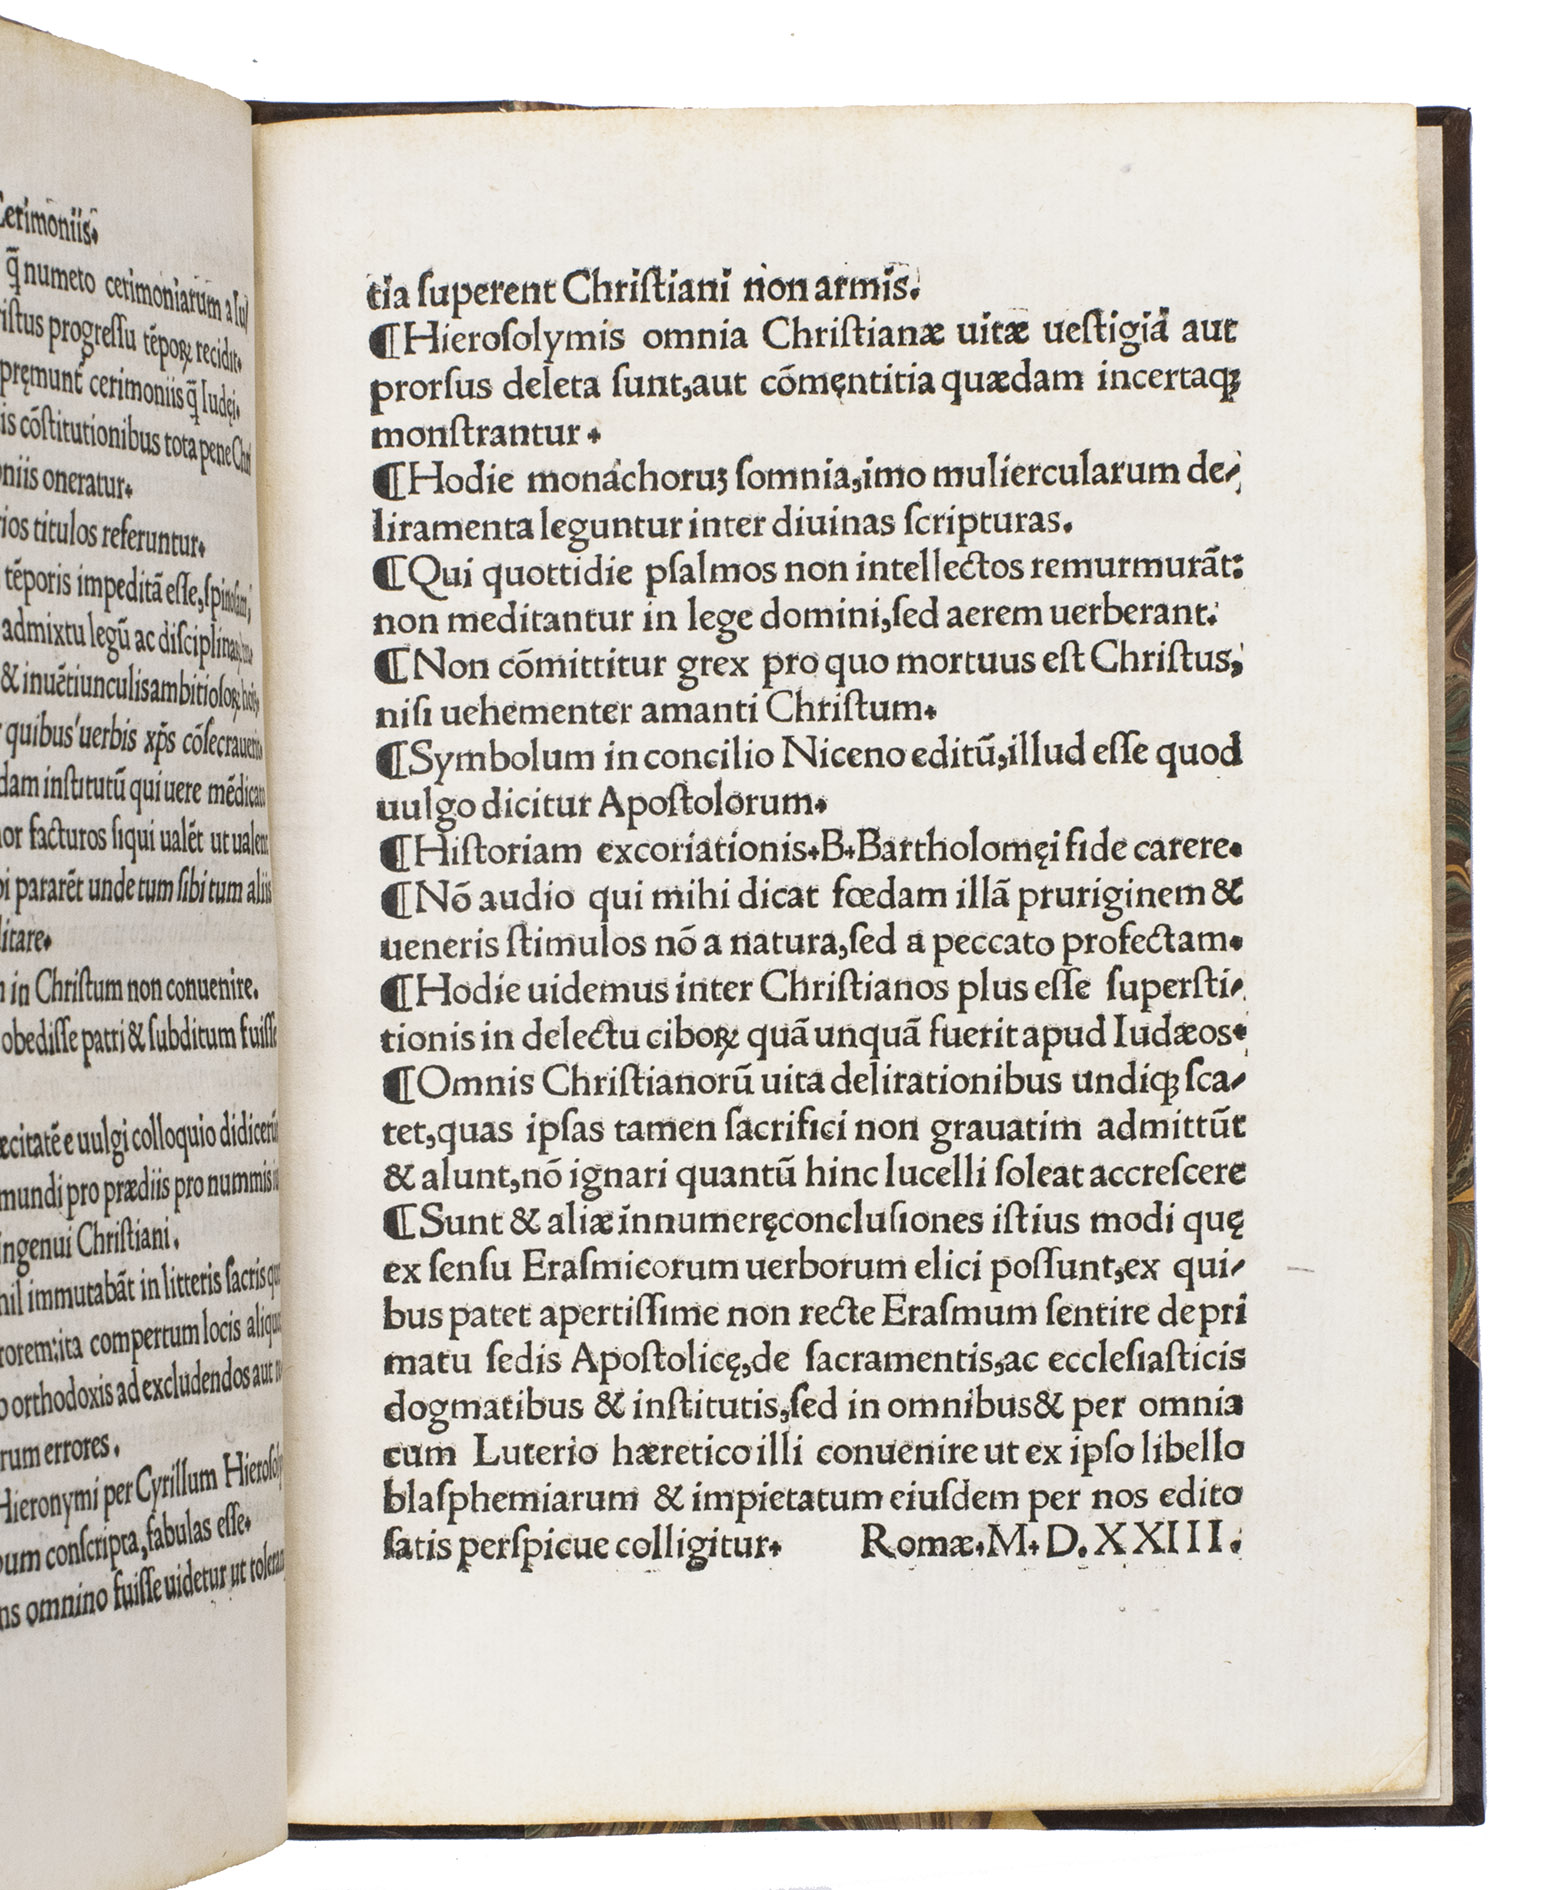 Cerimoniis.
q̃ numero cerimoniarum a Iu/
progressu tẽporꝝ recidit.
cerimoniis q̃ Iudęi.
cõstitutionibus tota pene Chri
oneratur.
titulos referuntur.
tẽporis impeditã esse, spinosam,
admixtu legũ ac disciplinarum
& inuẽtiunculis ambitiosoꝝ
quibus uerbis xp̃s cõsecrauerit
institutũ qui uere mẽdicant
facturos siqui ualẽt ut ualent
pararẽt unde tum sibi tum aliis
in Christum non conuenire.
obedisse patri & subditum fuisse
e uulgi colloquio didicerũt
mundi pro prædiis pro nummis
ingenui Christiani.
immutabãt in litteris sacris
ita compertum locis
orthodoxis ad excludendos aut
errores.
Hieronymi per Cyrillum
conscripta, fabulas esse.
omnino fuisse uidetur ut
tia superent Christiani non armis.
¶Hierosolymis omnia Christianæ uitæ uestigiã aut
prorsus deleta sunt, aut cõmẹntitia quædam incertaqꝫ
monstrantur.
¶Hodie monachoruꝫ somnia, imo muliercularum de/
liramenta leguntur inter diuinas scripturas.
¶Qui quottidie psalmos non intellectos remurmurãt:
non meditantur in lege domini, sed aerem uerberant.
¶Non cõmittitur grex pro quo mortuus est Christus,
nisi uehementer amanti Christum.
¶Symbolum in concilio Niceno editũ, illud esse quod
uulgo dicitur Apostolorum.
¶Historiam excoriationis.B.Bartholomęi fide carere.
¶Nõ audio qui mihi dicat fœdam illã pruriginem &
ueneris stimulos nõ a natura, sed a peccato profectam.
¶Hodie uidemus inter Christianos plus esse supersti/
tionis in delectu ciboꝝ quã unquã fuerit apud Iudæos.
¶Omnis Christianorũ uita delirationibus undiqꝫ sca/
tet, quas ipsas tamen sacrifici non grauatim admittũt
& alunt, nõ ignari quantũ hinc lucelli soleat accrescere
¶Sunt & aliæ innumerę conclusiones istius modi quę
ex sensu Erasmicorum uerborum elici possunt, ex qui/
bus patet apertissime non recte Erasmum sentire de pri
matu sedis Apostolicę, de sacramentis, ac ecclesiasticis
dogmatibus & institutis, sed in omnibus & per omnia
cum Luterio hæretico illi conuenire ut ex ipso libello
blasphemiarum & impietatum eiusdem per nos edito
satis perspicue colligitur. Romæ.M.D.XXIII.